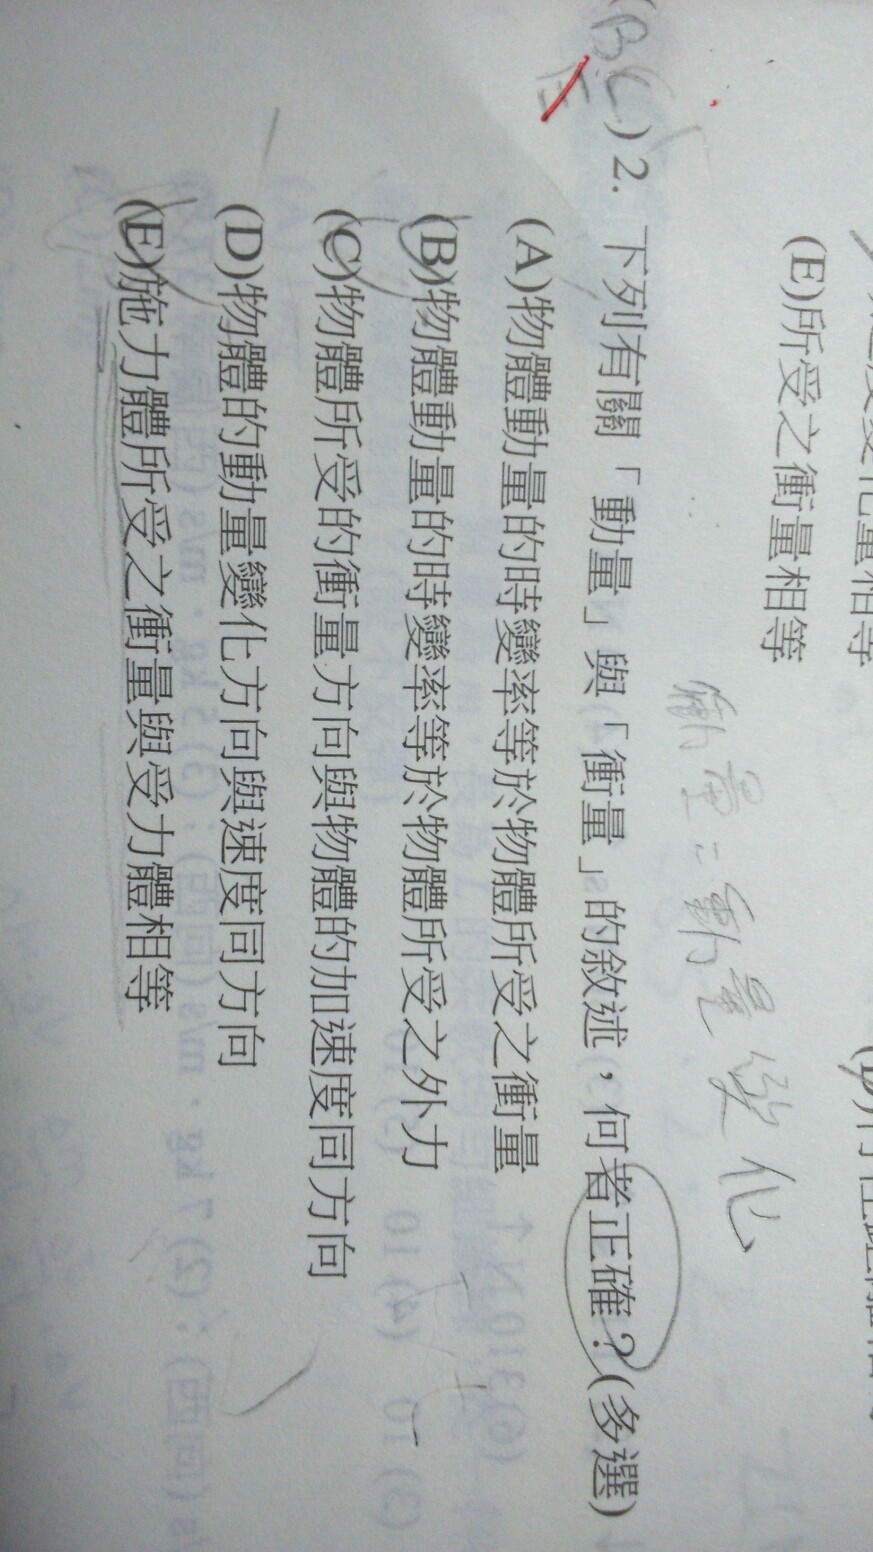 (E)所受之衝量相等
衝量=動量變化
(BC)2. 下列有關「動量」與「衝量」的敘述，何者正確？(多選)
E
(A)物體動量的時變率等於物體所受之衝量
(B)物體動量的時變率等於物體所受之外力
(C)物體所受的衝量方向與物體的加速度同方向
(D)物體的動量變化方向與速度同方向
(E)施力體所受之衝量與受力體相等